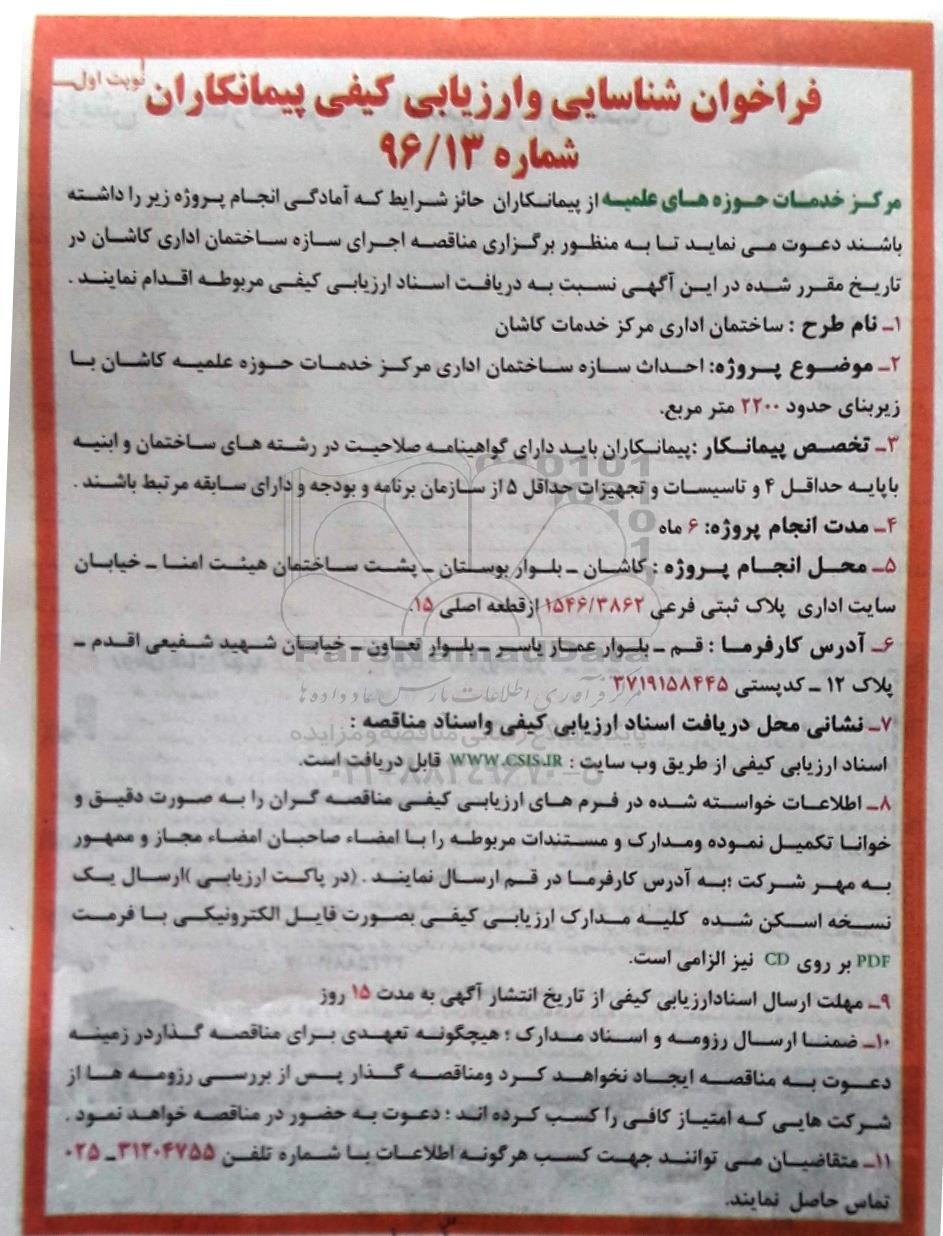 نوبت اول
فراخوان شناسایی وارزیابی کیفی پیمانکاران
شماره ۹۶/۱۳
مرکز خدمات حوزه های علمیه از پیمانکاران حائز شرایط که آمادگی انجام پروژه زیر را داشته
باشند دعوت می نماید تا به منظور برگزاری مناقصه اجرای سازه ساختمان اداری کاشان در
تاریخ مقرر شده در این آگهی نسبت به دریافت اسناد ارزیابی کیفی مربوطه اقدام نمایند .
۱ـ نام طرح : ساختمان اداری مرکز خدمات کاشان
۲ـ موضوع پروژه: احداث سازه ساختمان اداری مرکز خدمات حوزه علمیه کاشان با
زیربنای حدود ۲۲۰۰ متر مربع.
۳ـ تخصص پیمانکار :پیمانکاران باید دارای گواهینامه صلاحیت در رشته های ساختمان و ابنیه
باپایه حداقل ۴ و تاسیسات و تجهیزات حداقل ۵ از سازمان برنامه و بودجه و دارای سابقه مرتبط باشند .
۴ـ مدت انجام پروژه: ۶ ماه
۵ـ محل انجام پروژه : کاشان ـ بلوار بوستان ـ پشت ساختمان هیئت امنا ـ خیابان
سایت اداری پلاک ثبتی فرعی ۱۵۴۶/۳۸۶۲ ازقطعه اصلی ۱۵.
۶ـ آدرس کارفرما : قم ـ بلوار عمار یاسر ـ بلوار تعاون ـ خیابان شهید شفیعی اقدم ـ
پلاک ۱۲ ـ کدپستی ۳۷۱۹۱۵۸۴۴۵
۷ـ نشانی محل دریافت اسناد ارزیابی کیفی واسناد مناقصه :
اسناد ارزیابی کیفی از طریق وب سایت : WWW.CSIS.IR قابل دریافت است.
۸ـ اطلاعات خواسته شده در فرم های ارزیابی کیفی مناقصه گران را به صورت دقیق و
خوانا تکمیل نموده ومدارک و مستندات مربوطه را با امضاء صاحبان امضاء مجاز و ممهور
به مهر شرکت ؛به آدرس کارفرما در قم ارسال نمایند . (در پاکت ارزیابی )ارسال یک
نسخه اسکن شده کلیه مدارک ارزیابی کیفی بصورت فایل الکترونیکی با فرمت
PDF بر روی CD نیز الزامی است.
۹ـ مهلت ارسال اسنادارزیابی کیفی از تاریخ انتشار آگهی به مدت ۱۵ روز
۱۰ـ ضمنا ارسال رزومه و اسناد مدارک ؛ هیچگونه تعهدی برای مناقصه گذاردر زمینه
دعوت به مناقصه ایجاد نخواهد کرد ومناقصه گذار پس از بررسی رزومه ها از
شرکت هایی که امتیاز کافی را کسب کرده اند ؛ دعوت به حضور در مناقصه خواهد نمود .
۱۱ـ متقاضیان می توانند جهت کسب هرگونه اطلاعات با شماره تلفن ۳۱۲۰۴۷۵۵ـ ۰۲۵
تماس حاصل نمایند.
ParsNamadData
مرکز فرآوری اطلاعات پارس نماد داده ها